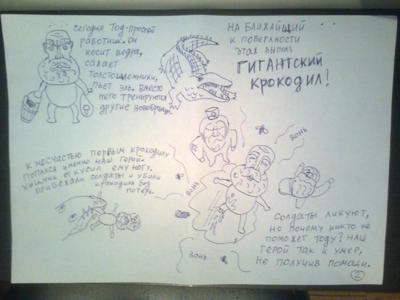 Сегодня Тод-простой
работник. Он
носит ведра,
сажает
толстошлемники,
пьет эль. Вместо
него тренируются
другие новобранцы.
На ближайший
к поверхности
этаж вылез
гигантский
крокодил!
К несчастью первым крокодилу
попался именно наш герой
Хищник откусил ему ногу.
Прибежали солдаты и убили
крокодила без
потерь.
Вонь
Вонь
Вонь
Вонь
Солдаты ликуют,
но почему никто не
поможет Тоду? Наш
герой так и умер,
не получив помощи.
2